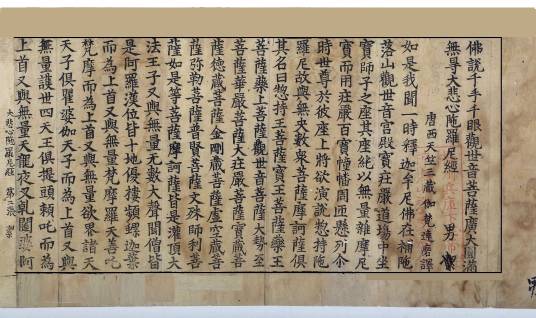 佛說千手千眼觀世音菩薩廣大圓滿
無㝵大悲心陁羅尼經
唐西天竺三藏伽梵達磨譯
如是我聞一時釋迦牟尼佛在補陁
落山觀世音宮殿寶莊嚴道場中坐
寶師子之座其座純以無量雜摩尼
寶而用莊嚴百寶幢幡周匝懸列尒
時世尊於彼座上將欲演說惣持陁
羅尼故與無央數衆菩薩摩訶薩俱
其名曰惣持王菩薩寶王菩薩藥王
菩薩藥上菩薩觀世音菩薩大勢至
菩薩華嚴菩薩大莊嚴菩薩寶藏菩
薩德藏菩薩金剛藏菩薩虛空藏菩
薩弥勒菩薩普賢菩薩文殊師利菩
薩如是等菩薩摩訶薩皆是灌頂大
法王子又與無量無數大聲聞僧皆
是阿羅漢位皆十地優樓頻螺迦葉
而為上首又與無量梵摩羅天善吒
梵摩而為上首又與無量欲界諸天
天子俱瞿婆伽天子而為上首又與
無量護世四天王俱提頭賴吒而為
上首又與無量天龍夜叉乹闥婆阿
大悲心陁羅尼経